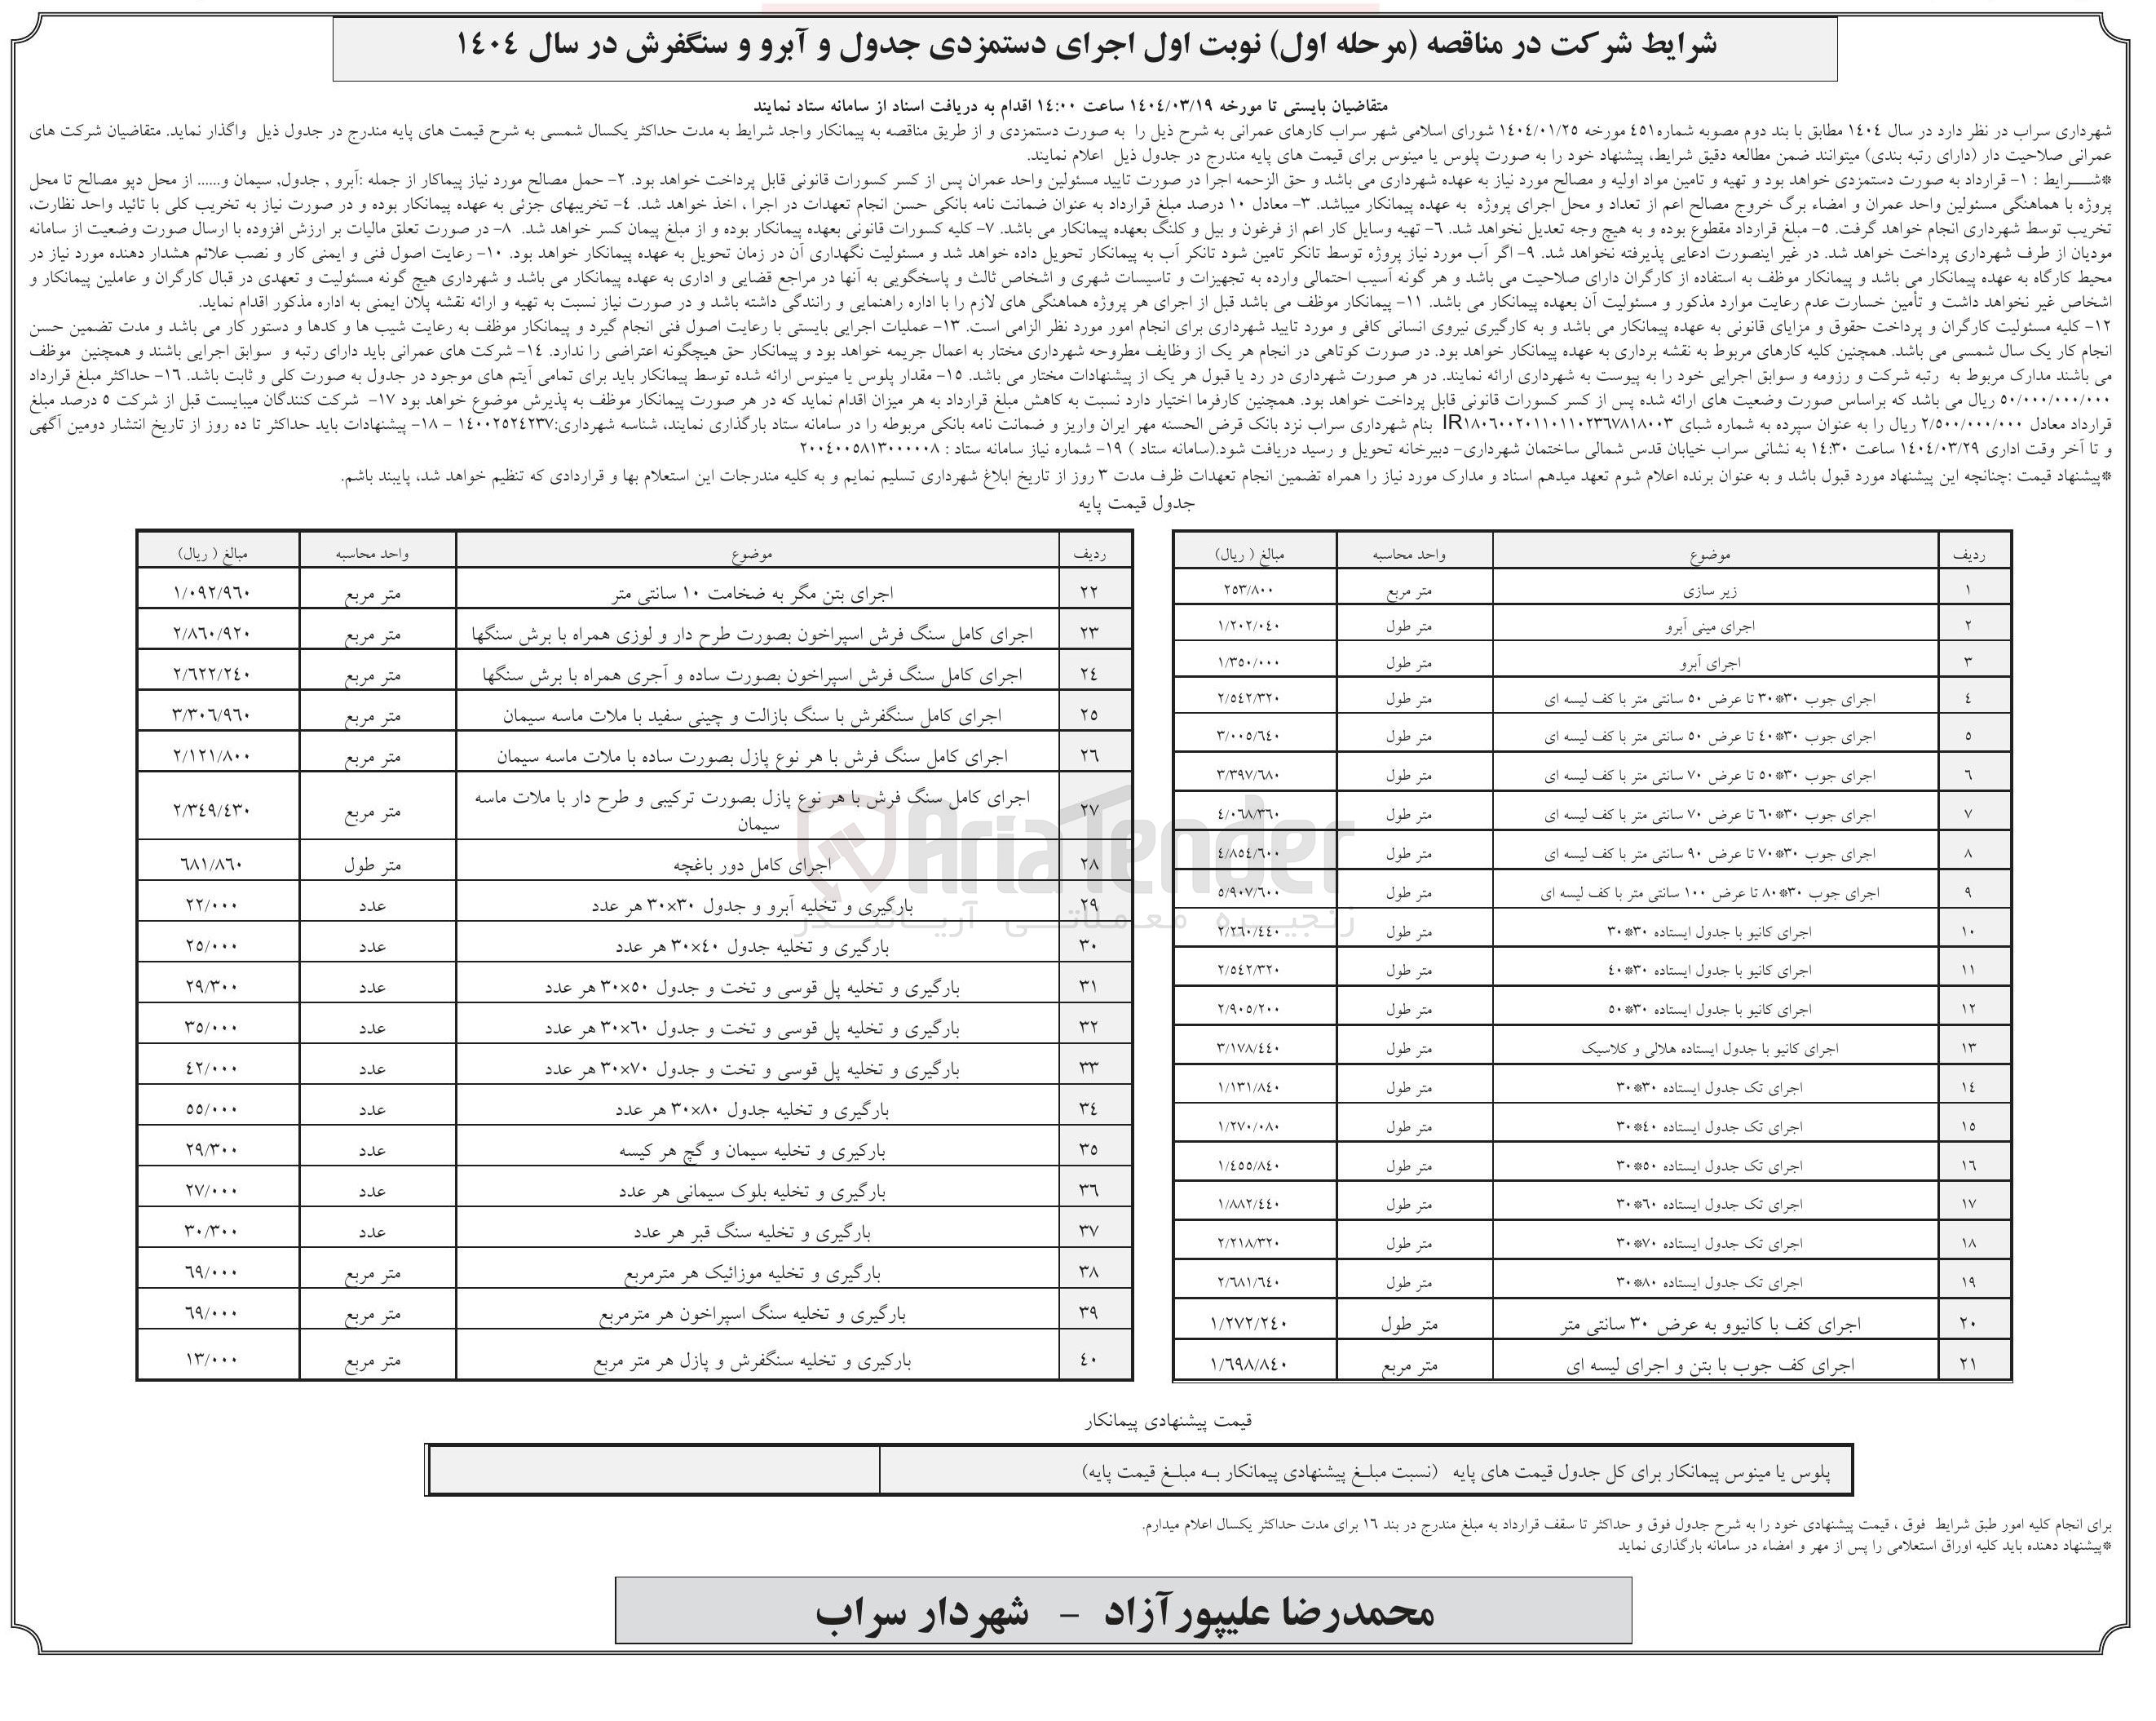 شرایط شرکت در مناقصه (مرحله اول) نوبت اول اجرای دستمزدی جدول و آبرو و سنگفرش در سال ١٤٠٤
متقاضیان بایستی تا مورخه ١٤٠٤/٠٣/١٩ ساعت ١٤:٠٠ اقدام به دریافت اسناد از سامانه ستاد نمایند
شهرداری سراب در نظر دارد در سال ١٤٠٤ مطابق با بند دوم مصوبه شماره٤٥١ مورخه ١٤٠٤/٠١/٢٥ شورای اسلامی شهر سراب کارهای عمرانی به شرح ذیل را به صورت دستمزدی و از طریق مناقصه به پیمانکار واجد شرایط به مدت حداکثر یکسال شمسی به شرح قیمت های پایه مندرج در جدول ذیل واگذار نماید. متقاضیان شرکت های
عمرانی صلاحیت دار (دارای رتبه بندی) میتوانند ضمن مطالعه دقیق شرایط، پیشنهاد خود را به صورت پلوس یا مینوس برای قیمت های پایه مندرج در جدول ذیل اعلام نمایند.
*شـــرایط : ١- قرارداد به صورت دستمزدی خواهد بود و تهیه و تامین مواد اولیه و مصالح مورد نیاز به عهده شهرداری می باشد و حق الزحمه اجرا در صورت تایید مسئولین واحد عمران پس از کسر کسورات قانونی قابل پرداخت خواهد بود. ٢- حمل مصالح مورد نیاز پیماکار از جمله :آبرو , جدول, سیمان و...... از محل دپو مصالح تا محل
پروژه با هماهنگی مسئولین واحد عمران و امضاء برگ خروج مصالح اعم از تعداد و محل اجرای پروژه به عهده پیمانکار میباشد. ٣- معادل ١٠ درصد مبلغ قرارداد به عنوان ضمانت نامه بانکی حسن انجام تعهدات در اجرا ، اخذ خواهد شد. ٤- تخریبهای جزئی به عهده پیمانکار بوده و در صورت نیاز به تخریب کلی با تائید واحد نظارت،
تخریب توسط شهرداری انجام خواهد گرفت. ٥- مبلغ قرارداد مقطوع بوده و به هیچ وجه تعدیل نخواهد شد. ٦- تهیه وسایل کار اعم از فرغون و بیل و کلنگ بعهده پیمانکار می باشد. ٧- کلیه کسورات قانونی بعهده پیمانکار بوده و از مبلغ پیمان کسر خواهد شد. ٨- در صورت تعلق مالیات بر ارزش افزوده با ارسال صورت وضعیت از سامانه
مودیان از طرف شهرداری پرداخت خواهد شد. در غیر اینصورت ادعایی پذیرفته نخواهد شد. ٩- اگر آب مورد نیاز پروژه توسط تانکر تامین شود تانکر آب به پیمانکار تحویل داده خواهد شد و مسئولیت نگهداری آن در زمان تحویل به عهده پیمانکار خواهد بود. ١٠- رعایت اصول فنی و ایمنی کار و نصب علائم هشدار دهنده مورد نیاز در
محیط کارگاه به عهده پیمانکار می باشد و پیمانکار موظف به استفاده از کارگران دارای صلاحیت می باشد و هر گونه آسیب احتمالی وارده به تجهیزات و تاسیسات شهری و اشخاص ثالث و پاسخگویی به آنها در مراجع قضایی و اداری به عهده پیمانکار می باشد و شهرداری هیچ گونه مسئولیت و تعهدی در قبال کارگران و عاملین پیمانکار و
اشخاص غیر نخواهد داشت و تأمین خسارت عدم رعایت موارد مذکور و مسئولیت آن بعهده پیمانکار می باشد. ١١- پیمانکار موظف می باشد قبل از اجرای هر پروژه هماهنگی های لازم را با اداره راهنمایی و رانندگی داشته باشد و در صورت نیاز نسبت به تهیه و ارائه نقشه پلان ایمنی به اداره مذکور اقدام نماید.
١٢- کلیه مسئولیت کارگران و پرداخت حقوق و مزایای قانونی به عهده پیمانکار می باشد و به کارگیری نیروی انسانی کافی و مورد تایید شهرداری برای انجام امور مورد نظر الزامی است. ١٣- عملیات اجرایی بایستی با رعایت اصول فنی انجام گیرد و پیمانکار موظف به رعایت شیب ها و کدها و دستور کار می باشد و مدت تضمین حسن
انجام کار یک سال شمسی می باشد. همچنین کلیه کارهای مربوط به نقشه برداری به عهده پیمانکار خواهد بود. در صورت کوتاهی در انجام هر یک از وظایف مطروحه شهرداری مختار به اعمال جریمه خواهد بود و پیمانکار حق هیچگونه اعتراضی را ندارد. ١٤- شرکت های عمرانی باید دارای رتبه و سوابق اجرایی باشند و همچنین موظف
می باشند مدارک مربوط به رتبه شرکت و رزومه و سوابق اجرایی خود را به پیوست به شهرداری ارائه نمایند. در هر صورت شهرداری در رد یا قبول هر یک از پیشنهادات مختار می باشد. ١٥- مقدار پلوس یا مینوس ارائه شده توسط پیمانکار باید برای تمامی آیتم های موجود در جدول به صورت کلی و ثابت باشد. ١٦- حداکثر مبلغ قرارداد
٥٠/٠٠٠/٠٠٠/٠٠٠ ریال می باشد که براساس صورت وضعیت های ارائه شده پس از کسر کسورات قانونی قابل پرداخت خواهد بود. همچنین کارفرما اختیار دارد نسبت به کاهش مبلغ قرارداد به هر میزان اقدام نماید که در هر صورت پیمانکار موظف به پذیرش موضوع خواهد بود ١٧- شرکت کنندگان میبایست قبل از شرکت ٥ درصد مبلغ
قرارداد معادل ٢/٥٠٠/٠٠٠/٠٠٠ ریال را به عنوان سپرده به شماره شبای IR١٨٠٦٠٠٢٠١١٠١١٠٢٣٦٧٨١٨٠٠٣ بنام شهرداری سراب نزد بانک قرض الحسنه مهر ایران واریز و ضمانت نامه بانکی مربوطه را در سامانه ستاد بارگذاری نمایند، شناسه شهرداری:١٤٠٠٢٥٢٤٢٣٧ - ١٨- پیشنهادات باید حداکثر تا ده روز از تاریخ انتشار دومین آگهی
و تا آخر وقت اداری ١٤٠٤/٠٣/٢٩ ساعت ١٤:٣٠ به نشانی سراب خیابان قدس شمالی ساختمان شهرداری- دبیرخانه تحویل و رسید دریافت شود.(سامانه ستاد ) ١٩- شماره نیاز سامانه ستاد : ٢٠٠٤٠٠٥٨١٣٠٠٠٠٠٨
*پیشنهاد قیمت :چنانچه این پیشنهاد مورد قبول باشد و به عنوان برنده اعلام شوم تعهد میدهم اسناد و مدارک مورد نیاز را همراه تضمین انجام تعهدات ظرف مدت ٣ روز از تاریخ ابلاغ شهرداری تسلیم نمایم و به کلیه مندرجات این استعلام بها و قراردادی که تنظیم خواهد شد، پایبند باشم.
جدول قیمت پایه
ردیف موضوع واحد محاسبه مبالغ ( ریال)
١ زیر سازی متر مربع ٢٥٣/٨٠٠
٢ اجرای مینی آبرو متر طول ١/٢٠٢/٠٤٠
٣ اجرای آبرو متر طول ١/٣٥٠/٠٠٠
٤ اجرای جوب ٣٠*٣٠ تا عرض ٥٠ سانتی متر با کف لیسه ای متر طول ٢/٥٤٢/٣٢٠
٥ اجرای جوب ٣٠*٤٠ تا عرض ٥٠ سانتی متر با کف لیسه ای متر طول ٣/٠٠٥/٦٤٠
٦ اجرای جوب ٣٠*٥٠ تا عرض ٧٠ سانتی متر با کف لیسه ای متر طول ٣/٣٩٧/٦٨٠
٧ اجرای جوب ٣٠*٦٠ تا عرض ٧٠ سانتی متر با کف لیسه ای متر طول ٤/٠٦٨/٣٦٠
٨ اجرای جوب ٣٠*٧٠ تا عرض ٩٠ سانتی متر با کف لیسه ای متر طول ٤/٨٥٤/٦٠٠
٩ اجرای جوب ٣٠*٨٠ تا عرض ١٠٠ سانتی متر با کف لیسه ای متر طول ٥/٩٠٧/٦٠٠
١٠ اجرای کانیو با جدول ایستاده ٣٠*٣٠ متر طول ٢/٢٦٠/٤٤٠
١١ اجرای کانیو با جدول ایستاده ٣٠*٤٠ متر طول ٢/٥٤٢/٣٢٠
١٢ اجرای کانیو با جدول ایستاده ٣٠*٥٠ متر طول ٢/٩٠٥/٢٠٠
١٣ اجرای کانیو با جدول ایستاده هلالی و کلاسیک متر طول ٣/١٧٨/٤٤٠
١٤ اجرای تک جدول ایستاده ٣٠*٣٠ متر طول ١/١٣١/٨٤٠
١٥ اجرای تک جدول ایستاده ٤٠*٣٠ متر طول ١/٢٧٠/٠٨٠
١٦ اجرای تک جدول ایستاده ٥٠*٣٠ متر طول ١/٤٥٥/٨٤٠
١٧ اجرای تک جدول ایستاده ٦٠*٣٠ متر طول ١/٨٨٢/٤٤٠
١٨ اجرای تک جدول ایستاده ٧٠*٣٠ متر طول ٢/٢١٨/٣٢٠
١٩ اجرای تک جدول ایستاده ٨٠*٣٠ متر طول ٢/٦٨١/٦٤٠
٢٠ اجرای کف با کانیوو به عرض ٣٠ سانتی متر متر طول ١/٢٧٢/٢٤٠
٢١ اجرای کف جوب با بتن و اجرای لیسه ای متر مربع ١/٦٩٨/٨٤٠
ردیف موضوع واحد محاسبه مبالغ ( ریال)
٢٢ اجرای بتن مگر به ضخامت ١٠ سانتی متر متر مربع ١/٠٩٢/٩٦٠
٢٣ اجرای کامل سنگ فرش اسپراخون بصورت طرح دار و لوزی همراه با برش سنگها متر مربع ٢/٨٦٠/٩٢٠
٢٤ اجرای کامل سنگ فرش اسپراخون بصورت ساده و آجری همراه با برش سنگها متر مربع ٢/٦٢٢/٢٤٠
٢٥ اجرای کامل سنگفرش با سنگ بازالت و چینی سفید با ملات ماسه سیمان متر مربع ٣/٣٠٦/٩٦٠
٢٦ اجرای کامل سنگ فرش با هر نوع پازل بصورت ساده با ملات ماسه سیمان متر مربع ٢/١٢١/٨٠٠
٢٧ اجرای کامل سنگ فرش با هر نوع پازل بصورت ترکیبی و طرح دار با ملات ماسه
سیمان متر مربع ٢/٣٤٩/٤٣٠
٢٨ اجرای کامل دور باغچه متر طول ٦٨١/٨٦٠
٢٩ بارگیری و تخلیه آبرو و جدول ٣٠×٣٠ هر عدد عدد ٢٢/٠٠٠
٣٠ بارگیری و تخلیه جدول ٤٠×٣٠ هر عدد عدد ٢٥/٠٠٠
٣١ بارگیری و تخلیه پل قوسی و تخت و جدول ٥٠×٣٠ هر عدد عدد ٢٩/٣٠٠
٣٢ بارگیری و تخلیه پل قوسی و تخت و جدول ٦٠×٣٠ هر عدد عدد ٣٥/٠٠٠
٣٣ بارگیری و تخلیه پل قوسی و تخت و جدول ٧٠×٣٠ هر عدد عدد ٤٢/٠٠٠
٣٤ بارگیری و تخلیه جدول ٨٠×٣٠ هر عدد عدد ٥٥/٠٠٠
٣٥ بارکیری و تخلیه سیمان و گچ هر کیسه عدد ٢٩/٣٠٠
٣٦ بارگیری و تخلیه بلوک سیمانی هر عدد عدد ٢٧/٠٠٠
٣٧ بارگیری و تخلیه سنگ قبر هر عدد عدد ٣٠/٣٠٠
٣٨ بارگیری و تخلیه موزائیک هر مترمربع متر مربع ٦٩/٠٠٠
٣٩ بارگیری و تخلیه سنگ اسپراخون هر مترمربع متر مربع ٦٩/٠٠٠
٤٠ بارکیری و تخلیه سنگفرش و پازل هر متر مربع متر مربع ١٣/٠٠٠
AriaTender
زنجیره معاملاتی آریاتندر
قیمت پیشنهادی پیمانکار
پلوس یا مینوس پیمانکار برای کل جدول قیمت های پایه (نسبت مبلـغ پیشنهادی پیمانکار بـه مبلـغ قیمت پایه)
برای انجام کلیه امور طبق شرایط فوق ، قیمت پیشنهادی خود را به شرح جدول فوق و حداکثر تا سقف قرارداد به مبلغ مندرج در بند ١٦ برای مدت حداکثر یکسال اعلام میدارم.
*پیشنهاد دهنده باید کلیه اوراق استعلامی را پس از مهر و امضاء در سامانه بارگذاری نماید
محمدرضا علیپورآزاد - شهردار سراب